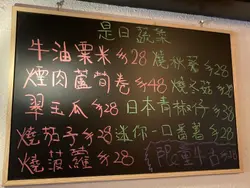 是日蔬菜
牛油粟米 $28 燒秋葵 $28
煙肉蘆筍卷 $48 燒冬菇 $28
翠玉瓜 $28 日本青椒仔 $38
燒茄子 $28 迷你一口番薯 $28
燒菠蘿 $28 限量